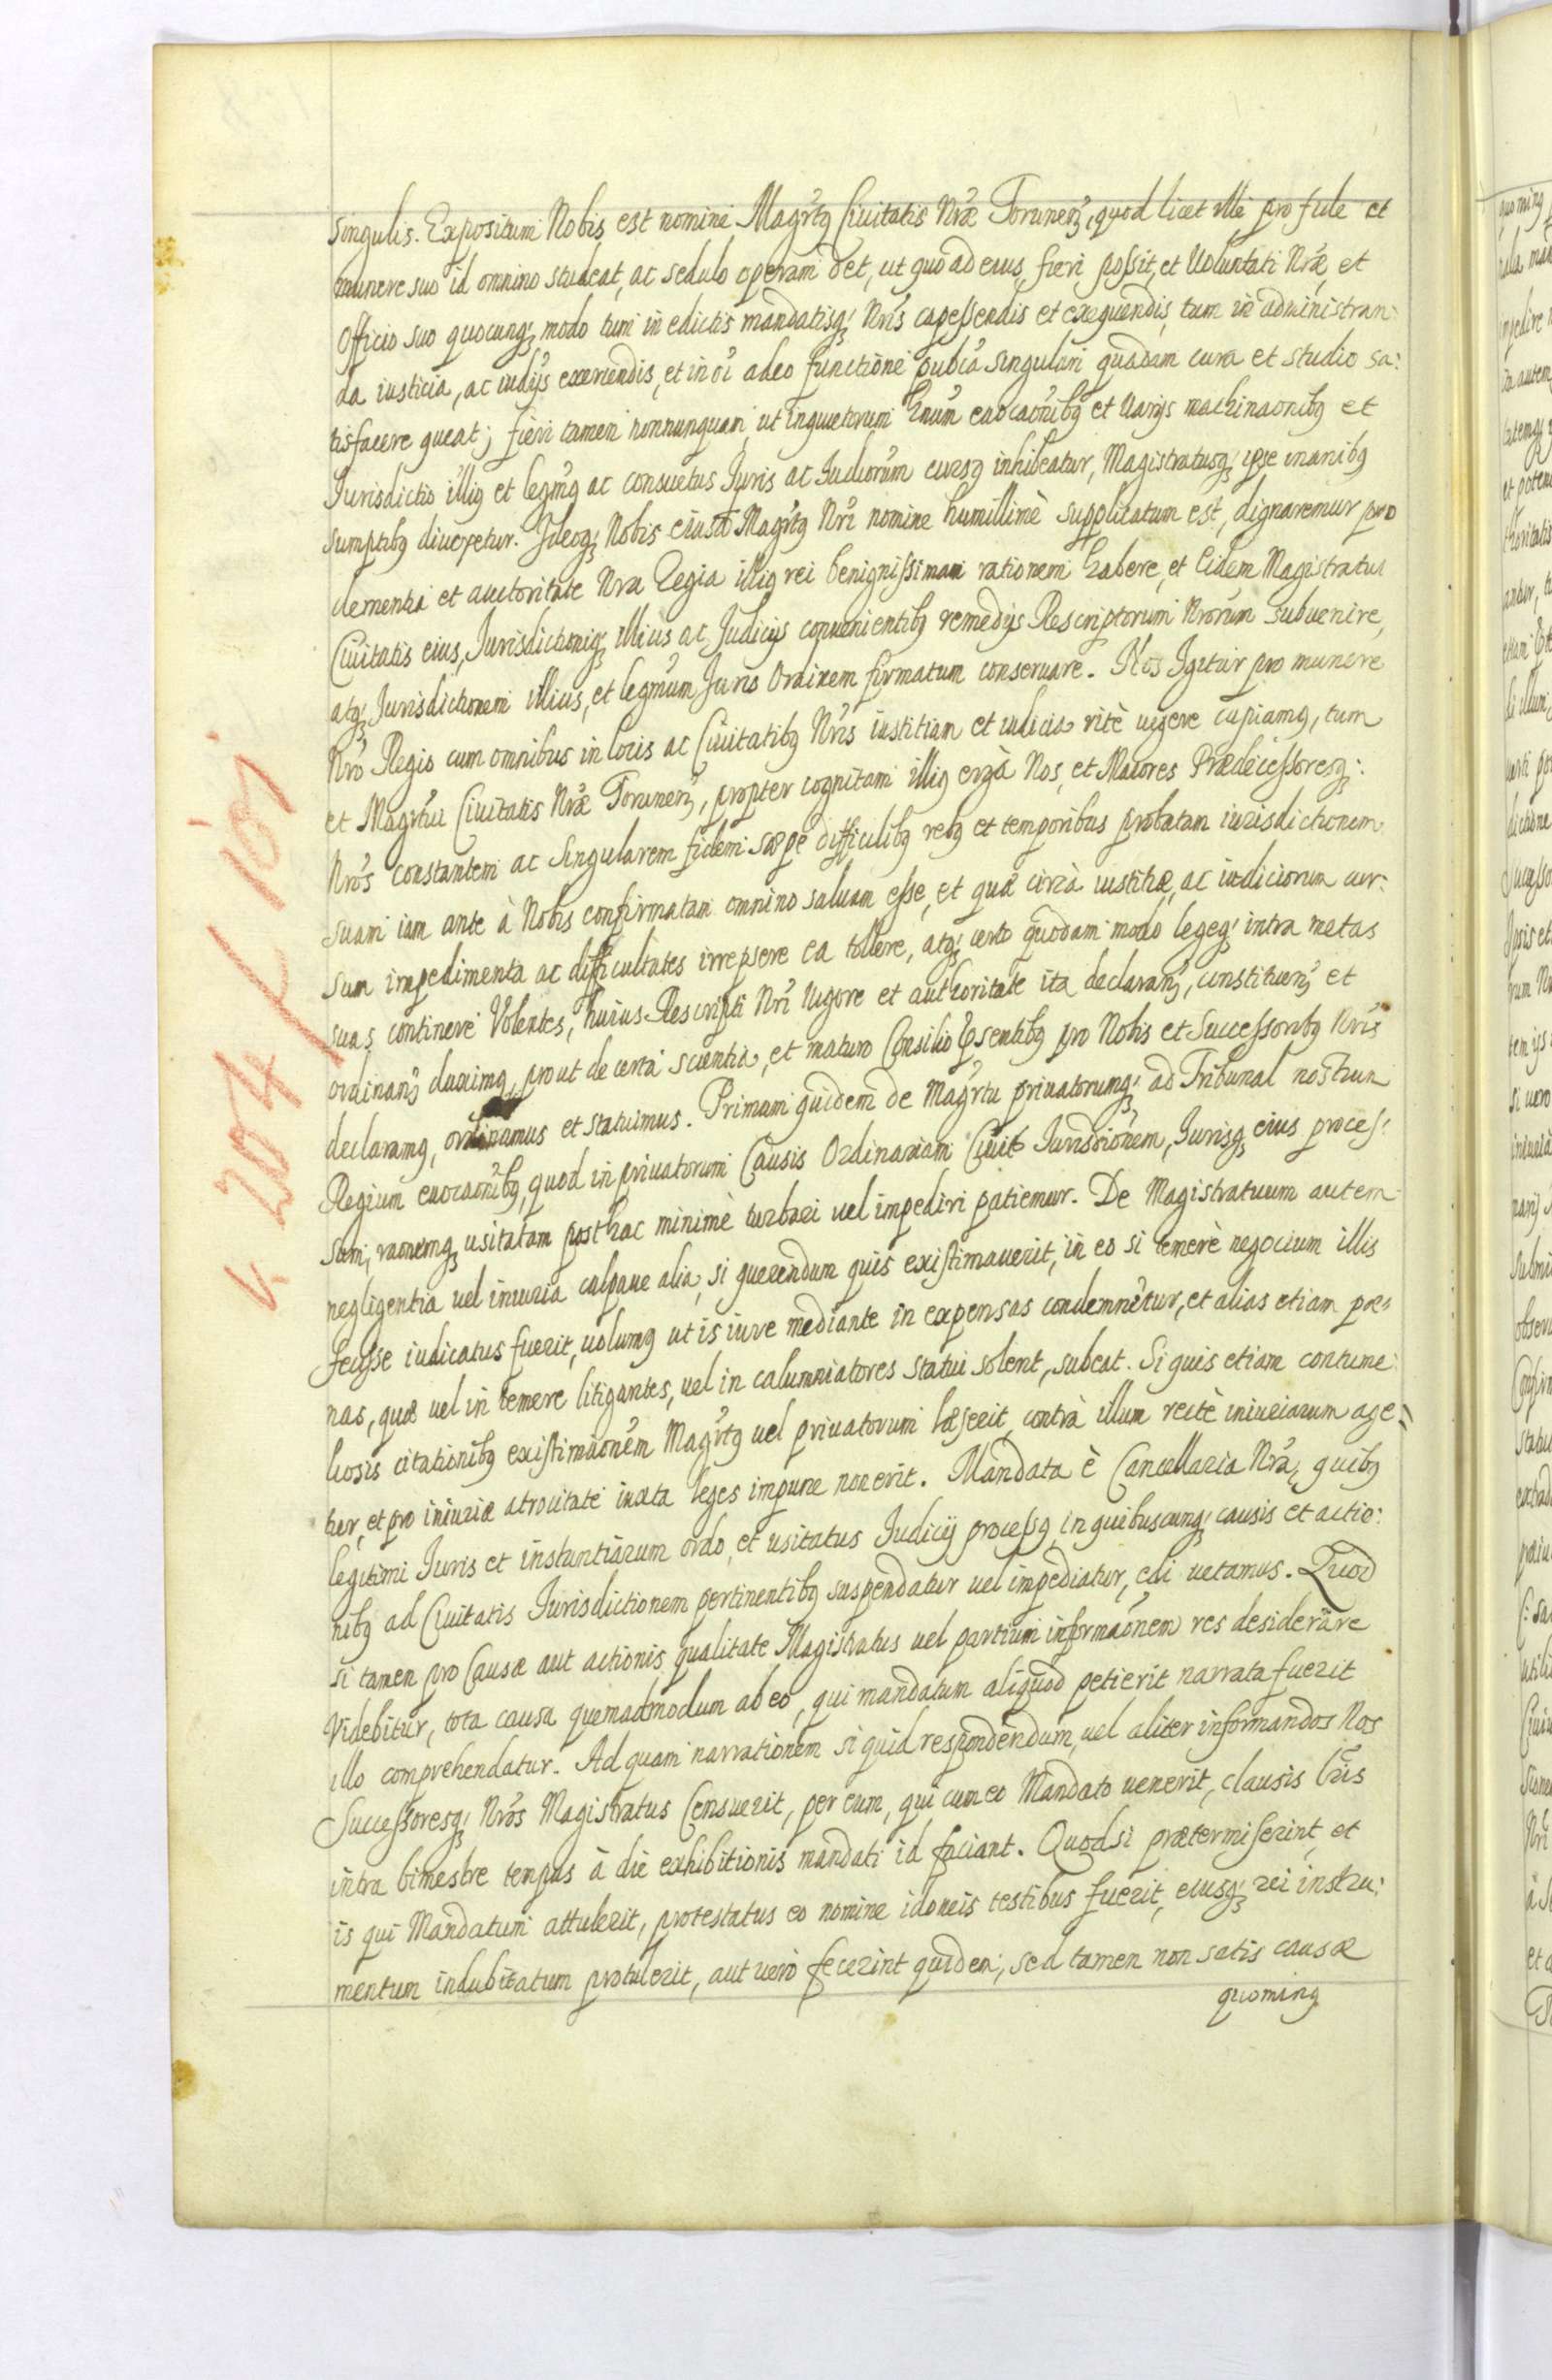 singulis. Expositum Nobis est nomine Magrꝰtꝯ Civitatis Nrꝰæ Torunenꝭ, quod licet ille pro fide et
munere suo id omnino studeat, ac sedulo operam det, ut quoad eius fieri possit, et Voluntati Nrꝰæ, et
Officio suo quocunqꝫ modo tum in edictis mandatisqꝫ Nrꝰis capessendis et exequendis, tum in administran:
da iusticia, ac iudijs exercendis, et in oꝰi adeo functione publꝰca singulari quadam cura et studio sa:
tisfacere queat; fieri tamen nonnunquam, ut inquietorum hnuꝰm euocaoꝰnibꝯ et Varijs machinaonibꝯ et
Jurisdictio illiꝯ et legmꝯ ac consuetus Juris ac Judiorꝰum cursꝯ inhibeatur, Magistratusqꝫ ipse inanibꝯ
sumptibꝯ diuexetur. Ideoqꝫ Nobis eiusd Magrꝰtꝯ Nrꝰi nomine humillimè supplicatum est, dignaremur pro
clementia et auctoritate Nra Regia illiꝯ rei benignissimam rationem habere, et Eidem Magistratui
Civitatis eius, Jurisdictioniqꝫ illius ac Judicijs convenientibꝯ remedijs Rescriptorum Nrorꝰum subuenire,
atqꝫ Jurisdictionem illius, et legmꝰum Juris Ordinem firmatum conseruare. Nos Igitur pro munere
Nrꝰo Regio cum omnibus in locis ac Civitatibꝯ Nrꝰis iustitiam et iudicia ritè uigere cupiamꝯ, tum
et Magrꝰtui Civitatis Nrꝰæ Torunenꝭ, propter cognitam illiꝯ ergà Nos, et Maiores Prædecessoresqꝫ:
Nrꝰos constantem ac singularem fidem sæpe difficilibꝯ rebꝯ et temporibus probatam iurisdictionem
suam iam ante à Nobis confirmatam omnino saluam esse, et quæ circà iustitiæ, ac iudiciorum cur:
sum impedimenta ac difficultates irrepsere ea tollere, atqꝫ certo quodam modo legeqꝫ intra metas
suas continere Volentes, huius Rescripti Nrꝰi Vigore et authoritate ita declaranꝭ, constituenꝭ et
ordinanꝭ duximꝯ, prout de certa scientia, et maturo Consilio Pꝰsentibꝯ pro Nobis et Successoribꝯ Nrꝰis
declaramꝯ, ordinamus et statuimus. Primam quidem de Magrꝰtu priuatorumqꝫ ad Tribunal nostrum
Regium euocaoꝰnibꝯ, quod in priuatorum Causis Ordinariam Civitꝰ Jurisdcionem, Jurisqꝫ eius proces:
sum, raonemqꝫ usitatam posthac minimè turbari uel impediri patiemur. De Magistratuum autem
negligentia uel iniuria culpaue alia, si querendum quis existimauerit, in eo si temerè negocium illis
fecisse iudicatus fuerit, uolumꝯ ut is iure mediante in expensas condemnetur, et alias etiam pœ:
nas, quæ uel in temere litigantes, uel in calumniatores statui solent, subeat. Si quis etiam contume:
liosis citationibꝯ existimaoneꝰm Magrꝰtꝯ uel priuatorum læserit, contrà illum rectè iniuriarum age:
tur, et pro iniuriæ atrocitate iuxta leges impune non erit. Mandata è Cancellaria Nrꝰa, quibꝯ
legitimi Juris et instantiarum ordo, et usitatus Judicij processꝯ in quibuscunqꝫ causis et actio:
nibꝯ ad Civitatis Jurisdictionem pertinentibꝯ suspendatur uel impediatur, edi uetamus. Quod
si tamen pro Causæ aut actionis qualitate Magistratus uel partium informaoꝰnem res desiderare
Videbitur, tota causa quemadmodum ab eo, qui mandatum aliquod petierit narrata fuerit
illo comprehendatur. Ad quam narrationem si quid respondendum, uel aliter informandos Nos
Successoresqꝫ Nrꝰos Magistratus Censuerit, per eum, qui cum eo Mandato uenerit, clausis Lrꝰis
intra bimestre tempus à die exhibitionis mandati id faciant. Quod si prætermiserint, et
is qui Mandatum attulerit, protestatus eo nomine idoneis testibus fuerit, eiusqꝫ rei instru:
mentum indubitatum protulerit, aut uerò fecerint quidem, sed tamen non satis causæ
quominꝯ